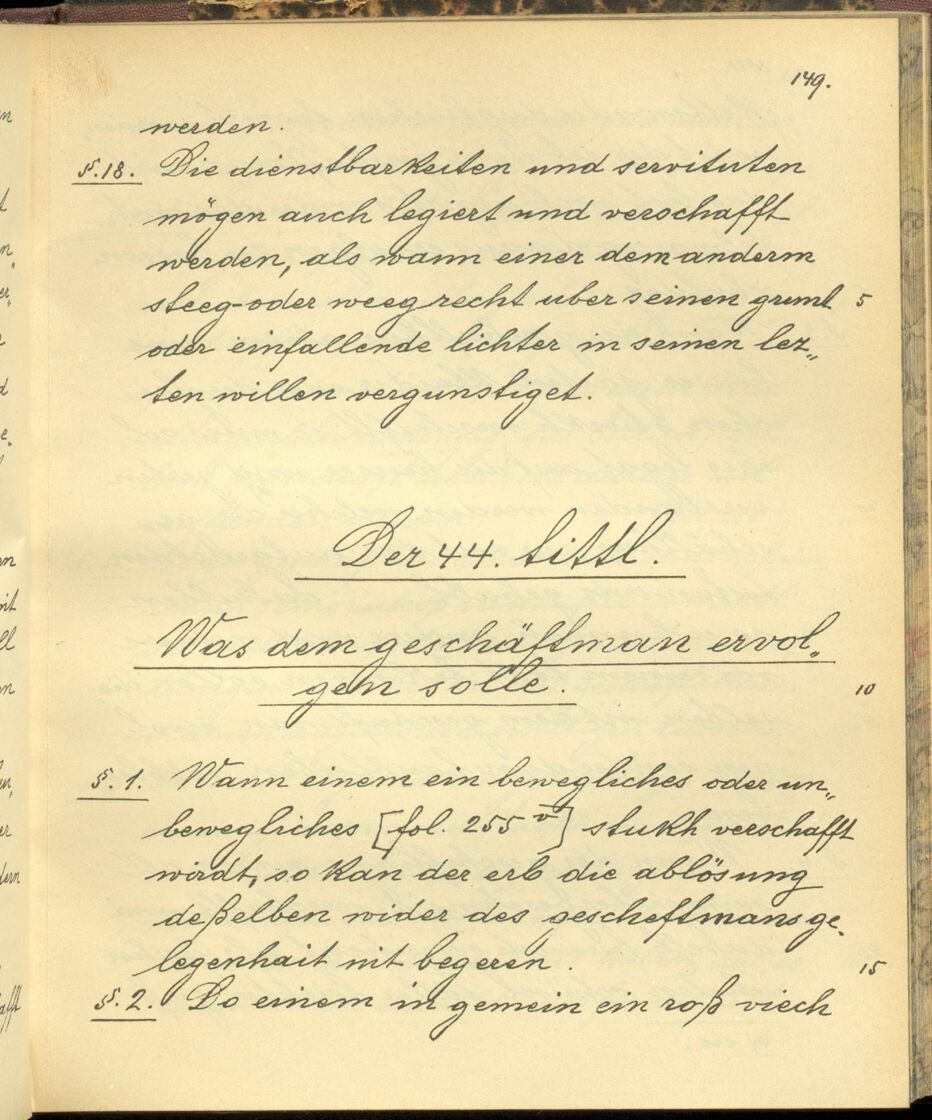 149.
werden.
§.18. Die dienstbarkeiten und servituten
mögen auch legiert und verschafft
werden, als wann einer dem anderm
steeg- oder weeg recht uber seinen grund 5
oder einfallende lichter in seinen lez„
ten willen vergunstiget.
Der 44. tittl.
Was dem geschäftman ervol„
gen solle. 10
§. 1. Wann einem ein bewegliches oder un„
bewegliches [fol. 255 v] stukh verschafft
wirdt, so kan der erb die ablösung
deßelben wider des gescheftmans ge„
legenhait nit begeren. 15
§. 2. Do einem in gemein ein roß viech